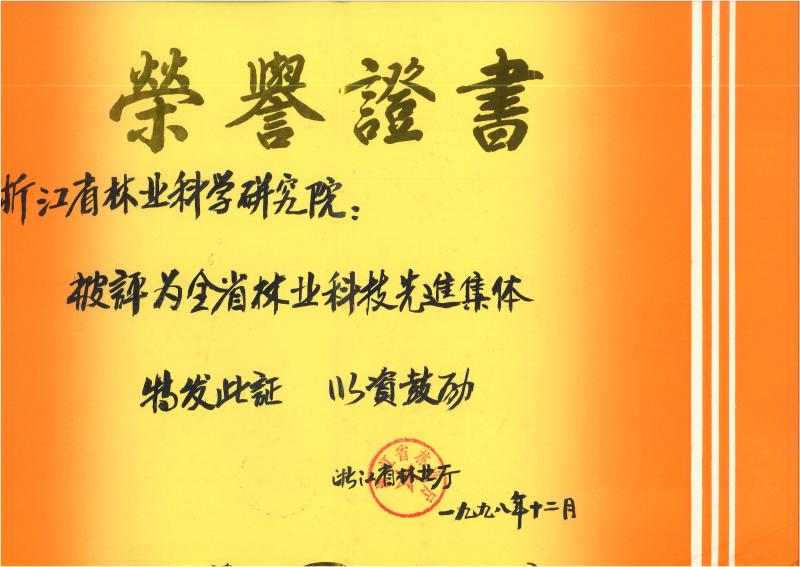 榮譽證書
浙江省林业科学研究院：
被評为全省林业科技先進集体
特发此証 以資鼓励
浙江省林业厅
一九九八年十二月